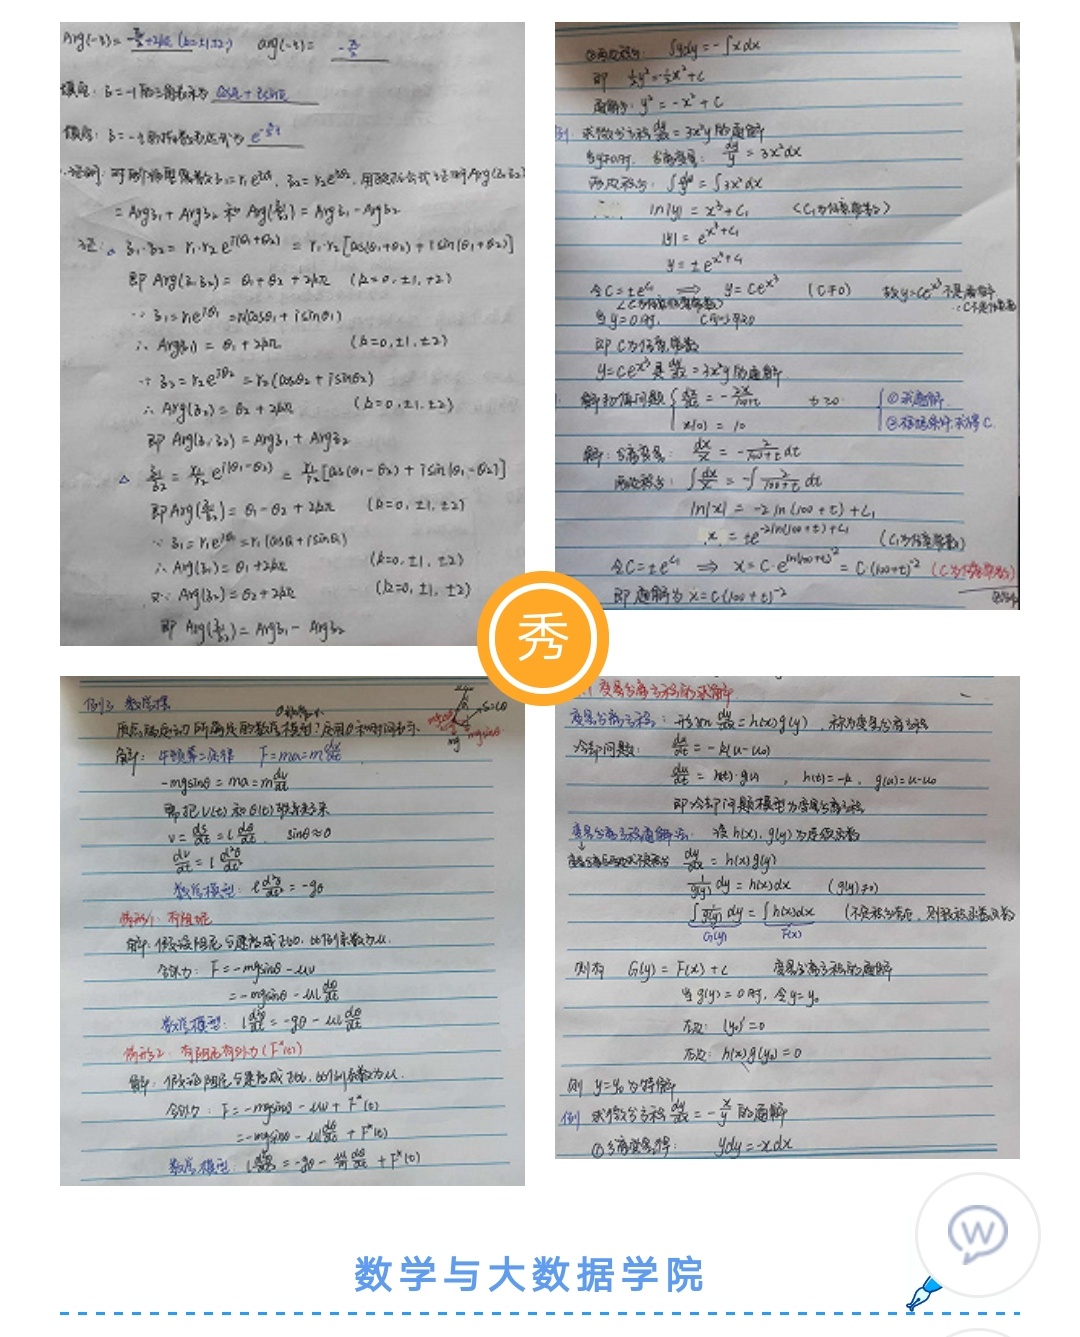 Arg(-i) = -π/2 + 2kπ (k=±1±2,) arg(-i) = -π/2
填空: z = -1 的三角表示为 cosπ + isinπ
= Argz₁ + Argz₂ 和 Arg(z₁/z₂) = Argz₁ - Argz₂
证: △ z₁·z₂ = r₁·r₂ e^{i(θ₁+θ₂)} = r₁·r₂[cos(θ₁+θ₂) + isin(θ₁+θ₂)]
即 Arg(z₁z₂) = θ₁ + θ₂ + 2kπ (k=0, ±1, ±2)
∵ z₁ = r₁e^{iθ₁} = r₁(cosθ₁ + isinθ₁)
∴ Arg(z₁) = θ₁ + 2kπ (k=0, ±1, ±2)
∵ z₂ = r₂e^{iθ₂} = r₂(cosθ₂ + isinθ₂)
∴ Arg(z₂) = θ₂ + 2kπ (k=0, ±1, ±2)
即 Arg(z₁z₂) = Argz₁ + Argz₂
△ z₁/z₂ = r₁/r₂ e^{i(θ₁-θ₂)} = r₁/r₂[cos(θ₁-θ₂) + isin(θ₁-θ₂)]
即 Arg(z₁/z₂) = θ₁ - θ₂ + 2kπ (k=0, ±1, ±2)
∵ z₁ = r₁e^{iθ₁} = r₁(cosθ₁ + isinθ₁)
∴ Arg(z₁) = θ₁ + 2kπ (k=0, ±1, ±2)
又∵ Arg(z₂) = θ₂ + 2kπ (k=0, ±1, ±2)
即 Arg(z₁/z₂) = Argz₁ - Argz₂
②两边积分: ∫ydy = -∫xdx
即 ½y² = -½x² + C
通解为: y² = -x² + C
例: 求微分方程 dy/dx = 3x²y 的通解
当y≠0时, 分离变量: dy/y = 3x²dx
两边积分: ∫dy/y = ∫3x²dx
ln|y| = x³ + C₁ (C₁为任意常数)
|y| = e^{x³+C₁}
y = ±e^{x³+C₁}
令C = ±e^{C₁} ⟹ y = Ce^{x³} (C≠0) 故y=Ce^{x³}不是通解
当y=0时, C可以为0
即 C为任意常数
y = Ce^{x³} 是 dy/dx = 3x²y 的通解
解初值问题 { dx/dt = -2x/(100+t) t≥0 ①求通解
x(0) = 10 ②根据条件求得C.
解: 分离变量: dx/x = -2/(100+t) dt
两边积分: ∫dx/x = -∫2/(100+t) dt
ln|x| = -2ln(100+t) + C₁
x = ±e^{-2ln(100+t)+C₁} (C₁为任意常数)
令C = ±e^{C₁} ⟹ x = C·e^{ln(100+t)^{-2}} = C(100+t)^{-2} (C为任意常数)
即 通解为 x = C(100+t)^{-2}
秀
例3 数学摆
解: 牛顿第二定律 F = ma = m dv/dt
-mgsinθ = ma = m dv/dt
需把 v(t) 和 θ(t) 联系起来
v = ds/dt = l dθ/dt sinθ≈θ
dv/dt = l d²θ/dt²
数学模型: l d²θ/dt² = -gθ
情形1: 有阻尼
解: 假设阻尼与速度成正比, 比例系数为μ.
合外力: F = -mgsinθ - μv
= -mgsinθ - μl dθ/dt
情形2: 有阻尼有外力(F*(t))
解: 假设阻尼与速度成正比, 比例系数为μ.
合外力: F = -mgsinθ - μv + F*(t)
= -mgsinθ - μl dθ/dt + F*(t)
变量分离方程的求解
变量分离方程: 形如 dy/dx = h(x)g(y), 称为变量分离方程
冷却问题: du/dt = -k(u-u₀)
du/dt = h(t)·g(u), h(t) = -k, g(u) = u-u₀
即冷却问题模型为变量分离方程
变量分离方程通解法: 设 h(x), g(y) 为连续函数
dy/dx = h(x)g(y)
1/g(y) dy = h(x)dx (g(y)≠0)
∫1/g(y) dy = ∫h(x)dx
G(y) F(x)
则有 G(y) = F(x) + C 变量分离方程的通解
当 g(y) = 0 时, 令 y = y₀
左边: (y₀)' = 0
右边: h(x)g(y₀) = 0
则 y = y₀ 为特解
例 求微分方程 dy/dx = -x/y 的通解
①分离变量得: ydy = -xdx
数学与大数据学院
W